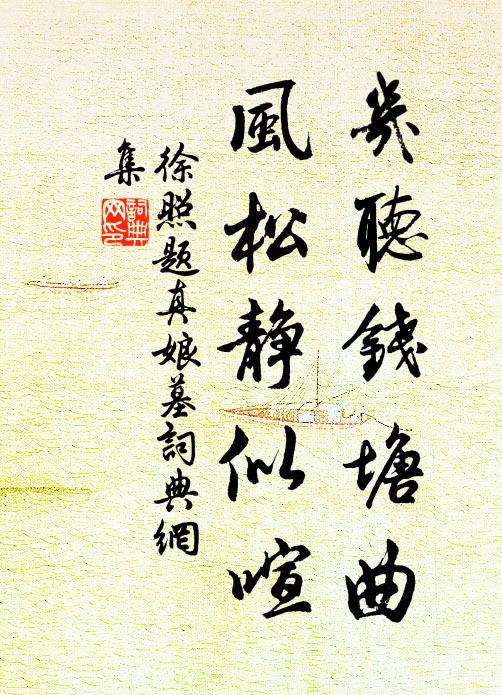 幾聽錢塘曲
風松静似喧
徐照題真娘墓詞典網
集
詞典
网印